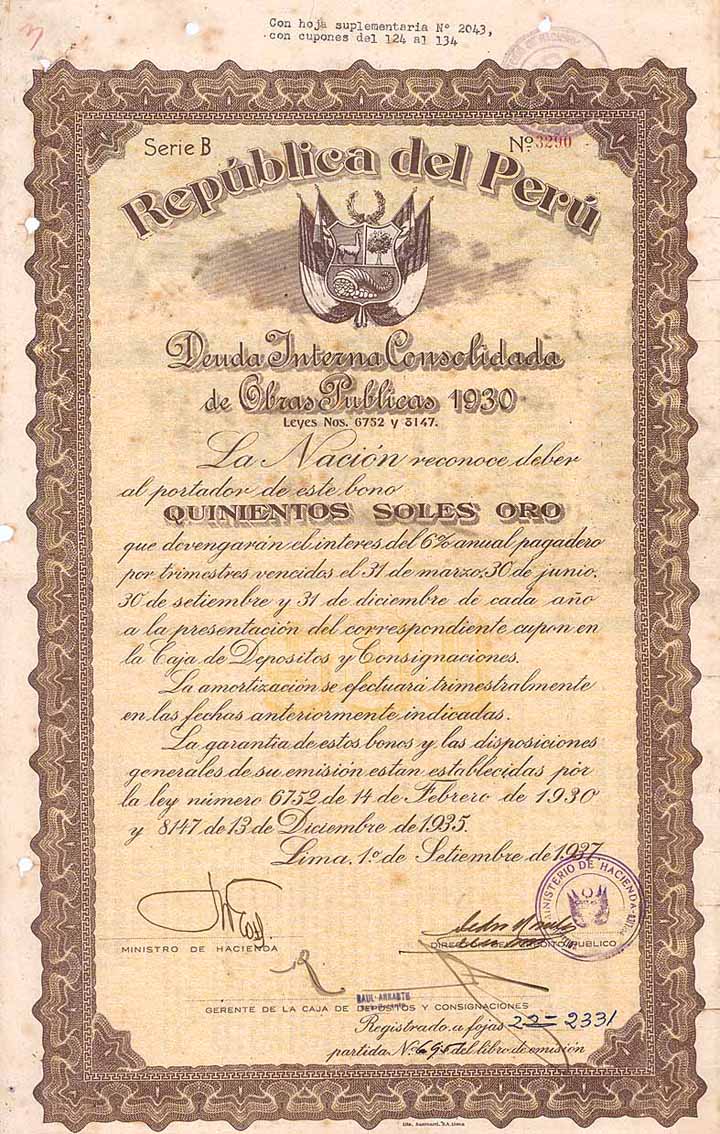 Con hoja suplementaria Nº 2043,
con cupones del 124 al 134
Serie B
Nº 3290
República del Perú
Deuda Interna Consolidada
de Obras Publicas 1930
Leyes Nos. 6752 y 8147.
La Nación reconoce deber
al portador de este bono
QUINIENTOS SOLES ORO
que devengarán el interes del 6% anual pagadero
por trimestres vencidos el 31 de marzo, 30 de junio,
30 de setiembre y 31 de diciembre de cada año
a la presentación del correspondiente cupon en
la Caja de Depositos y Consignaciones.
La amortización se efectuará trimestralmente
en las fechas anteriormente indicadas.
La garantia de estos bonos y las disposiciones
generales de su emisión estan establecidas por
la ley número 6752 de 14 de Febrero de 1930
y 8147 de 13 de Diciembre de 1935.
Lima, 1º de Setiembre de 1937.
MINISTERIO DE HACIENDA
MINISTRO DE HACIENDA
DIRECTOR DE CREDITO PUBLICO
RAUL ARRARTE
GERENTE DE LA CAJA DE DEPOSITOS Y CONSIGNACIONES
Registrado a fojas 22= 2331
partida Nº del libro de emisión